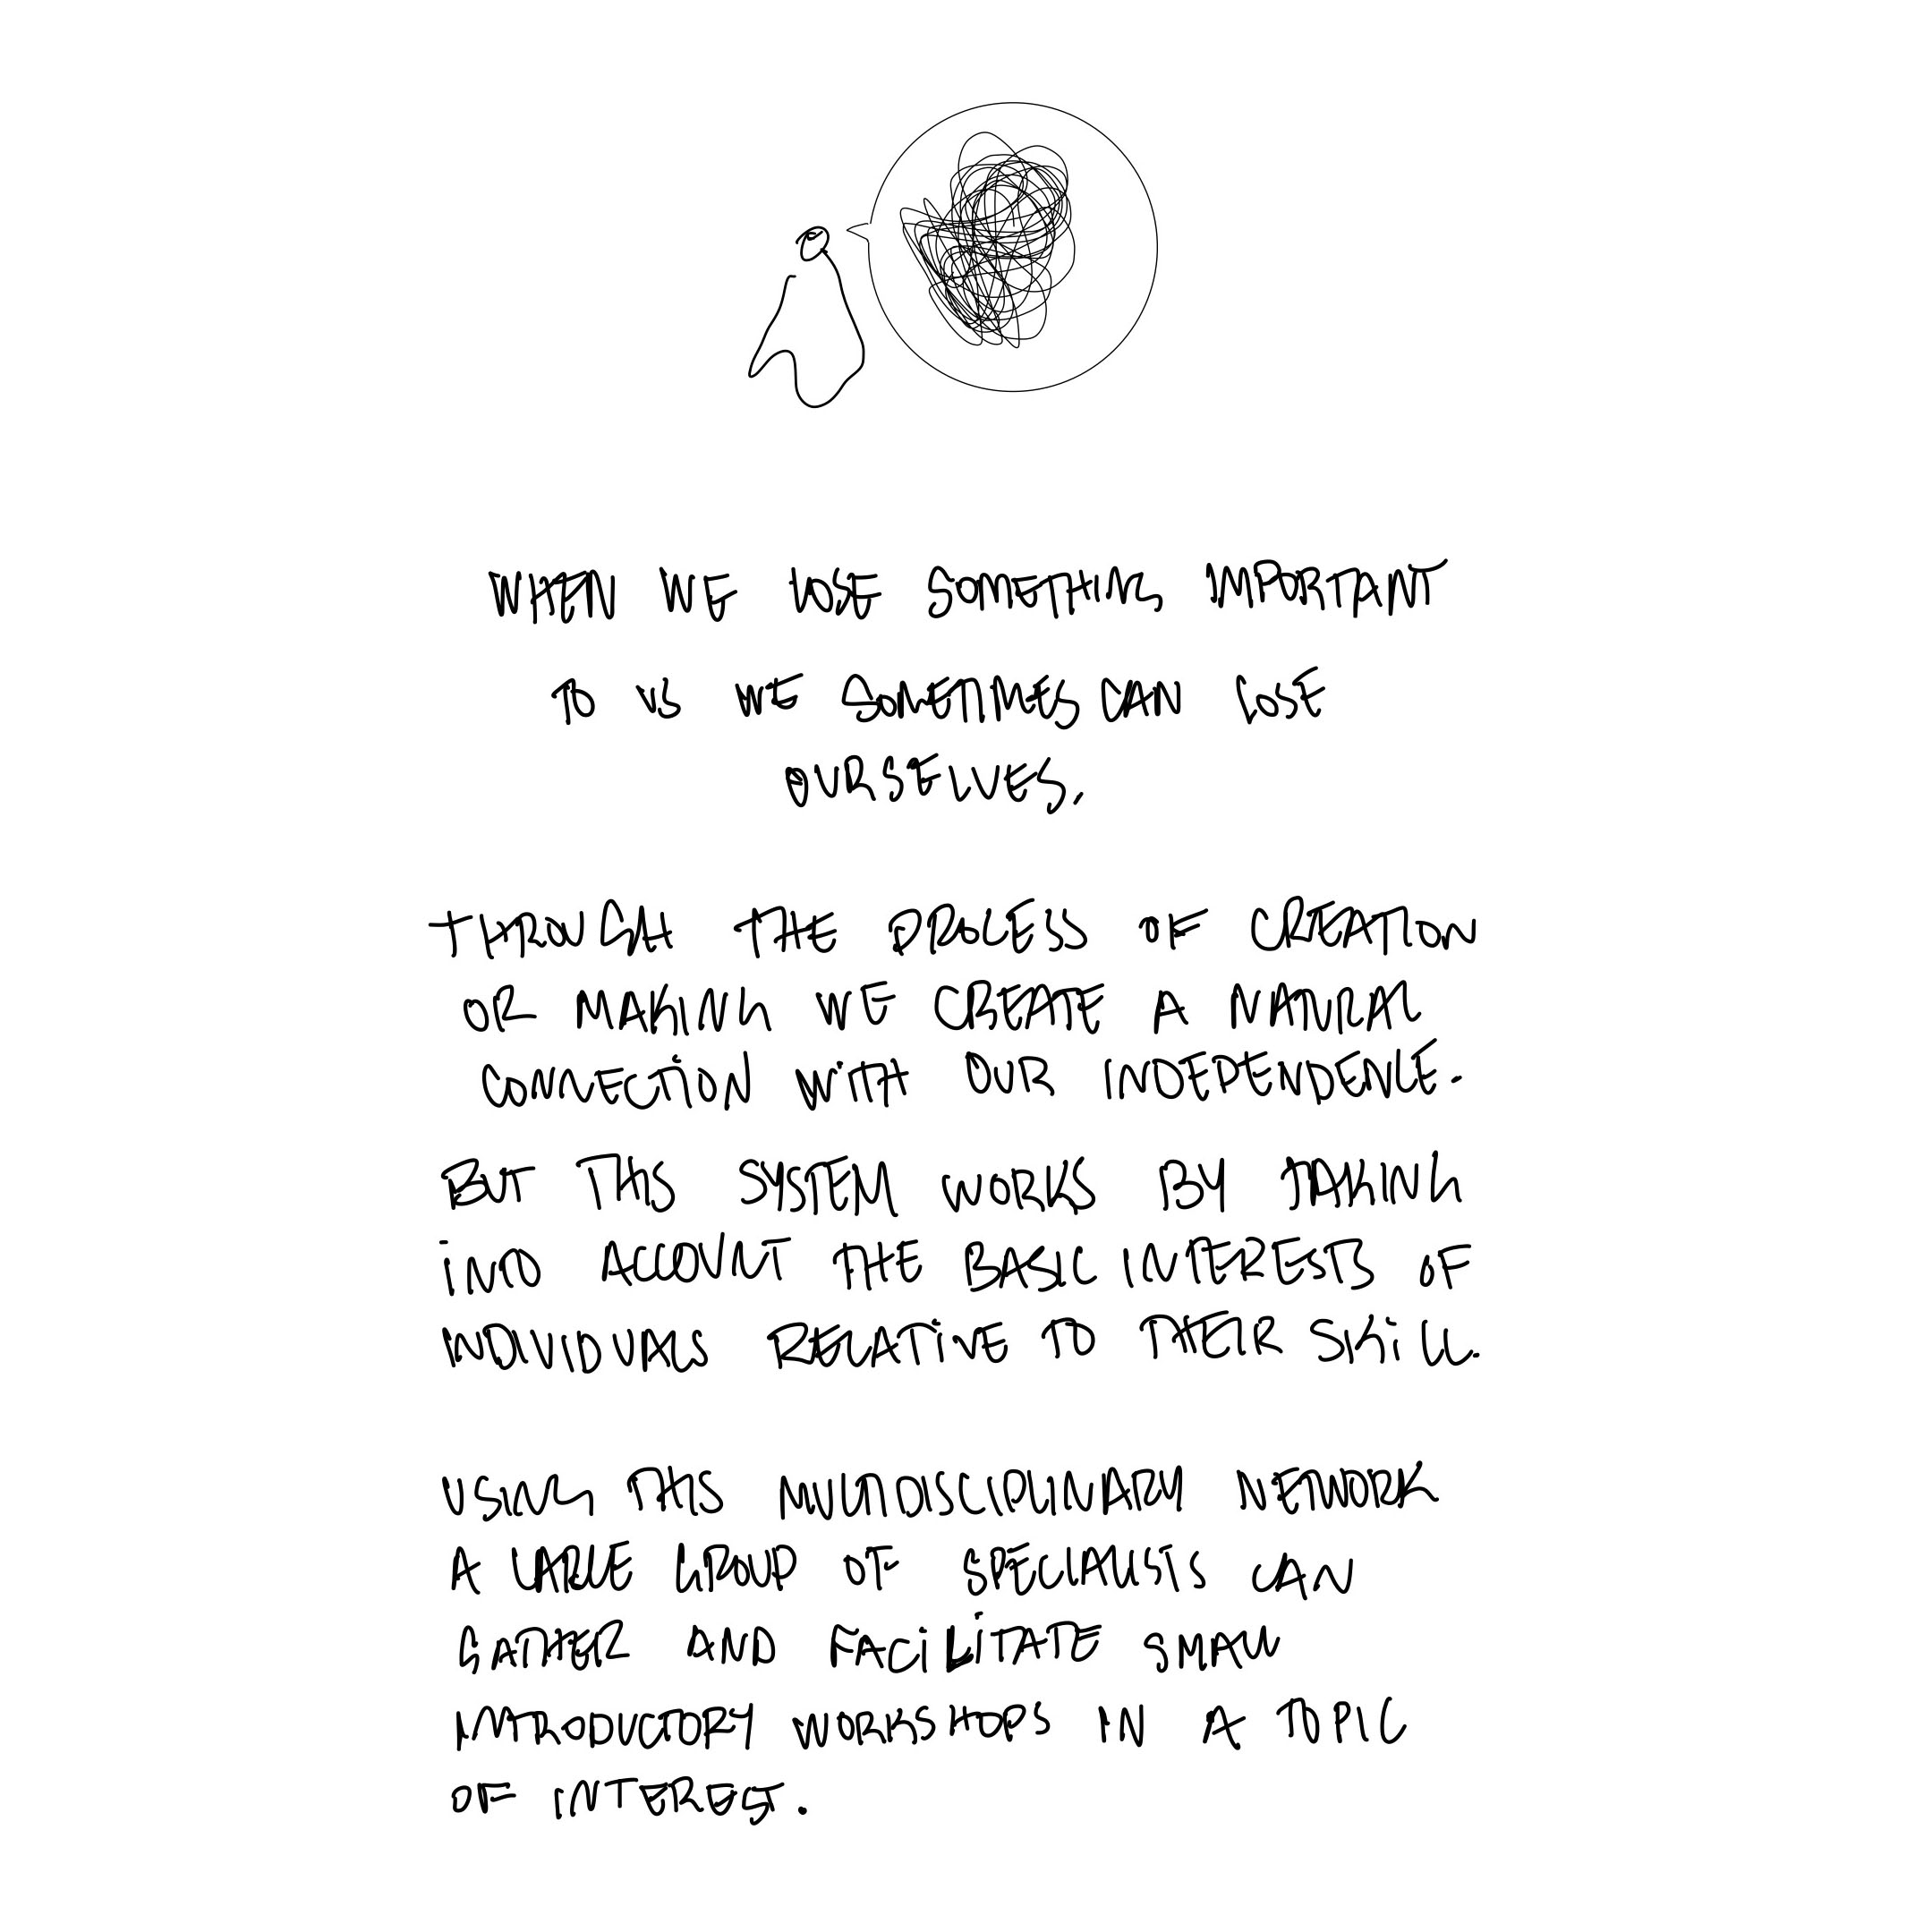 WHEN WE LOSE SOMETHING IMPORTANT
TO US WE SOMETIMES CAN LOSE
OURSELVES.
THROUGH THE PROCESS OF CREATION
OR MAKING WE CREATE A MANUAL
CONNECTION WITH OUR INDEPENDENCE.
BUT THIS SYSTEM WORKS BY TAKING
INTO ACCOUNT THE BASIC INTERESTS OF
INDIVIDUALS RELATIVE TO THEIR SKILL.
USING THIS MULTIDISCIPLINARY NETWORK
A LARGE GROUP OF SPECIALISTS CAN
GATHER AND FACILITATE SMALL
INTRODUCTORY WORKSHOPS IN A TOPIC
OF INTEREST.